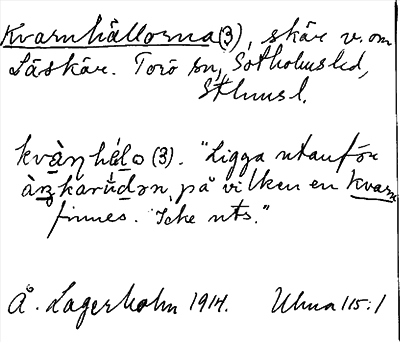 Kvarnhällorna (3), skär v. om
Låskär. Torö sn, Sotholms hd,
Sthms l.
kvàṇhélo (3). "Ligga utanför
àṇkarúdən, på vilken en kvarn
finnes. Icke uts."
Å. Lagerholm 1914. Uhma 115:1